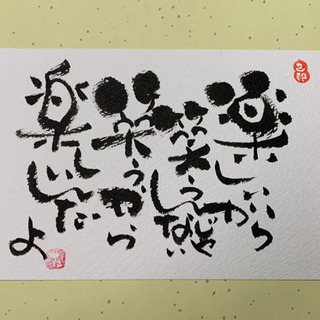 楽しいから
笑うんじゃない
笑うから
楽しいんだ
よ